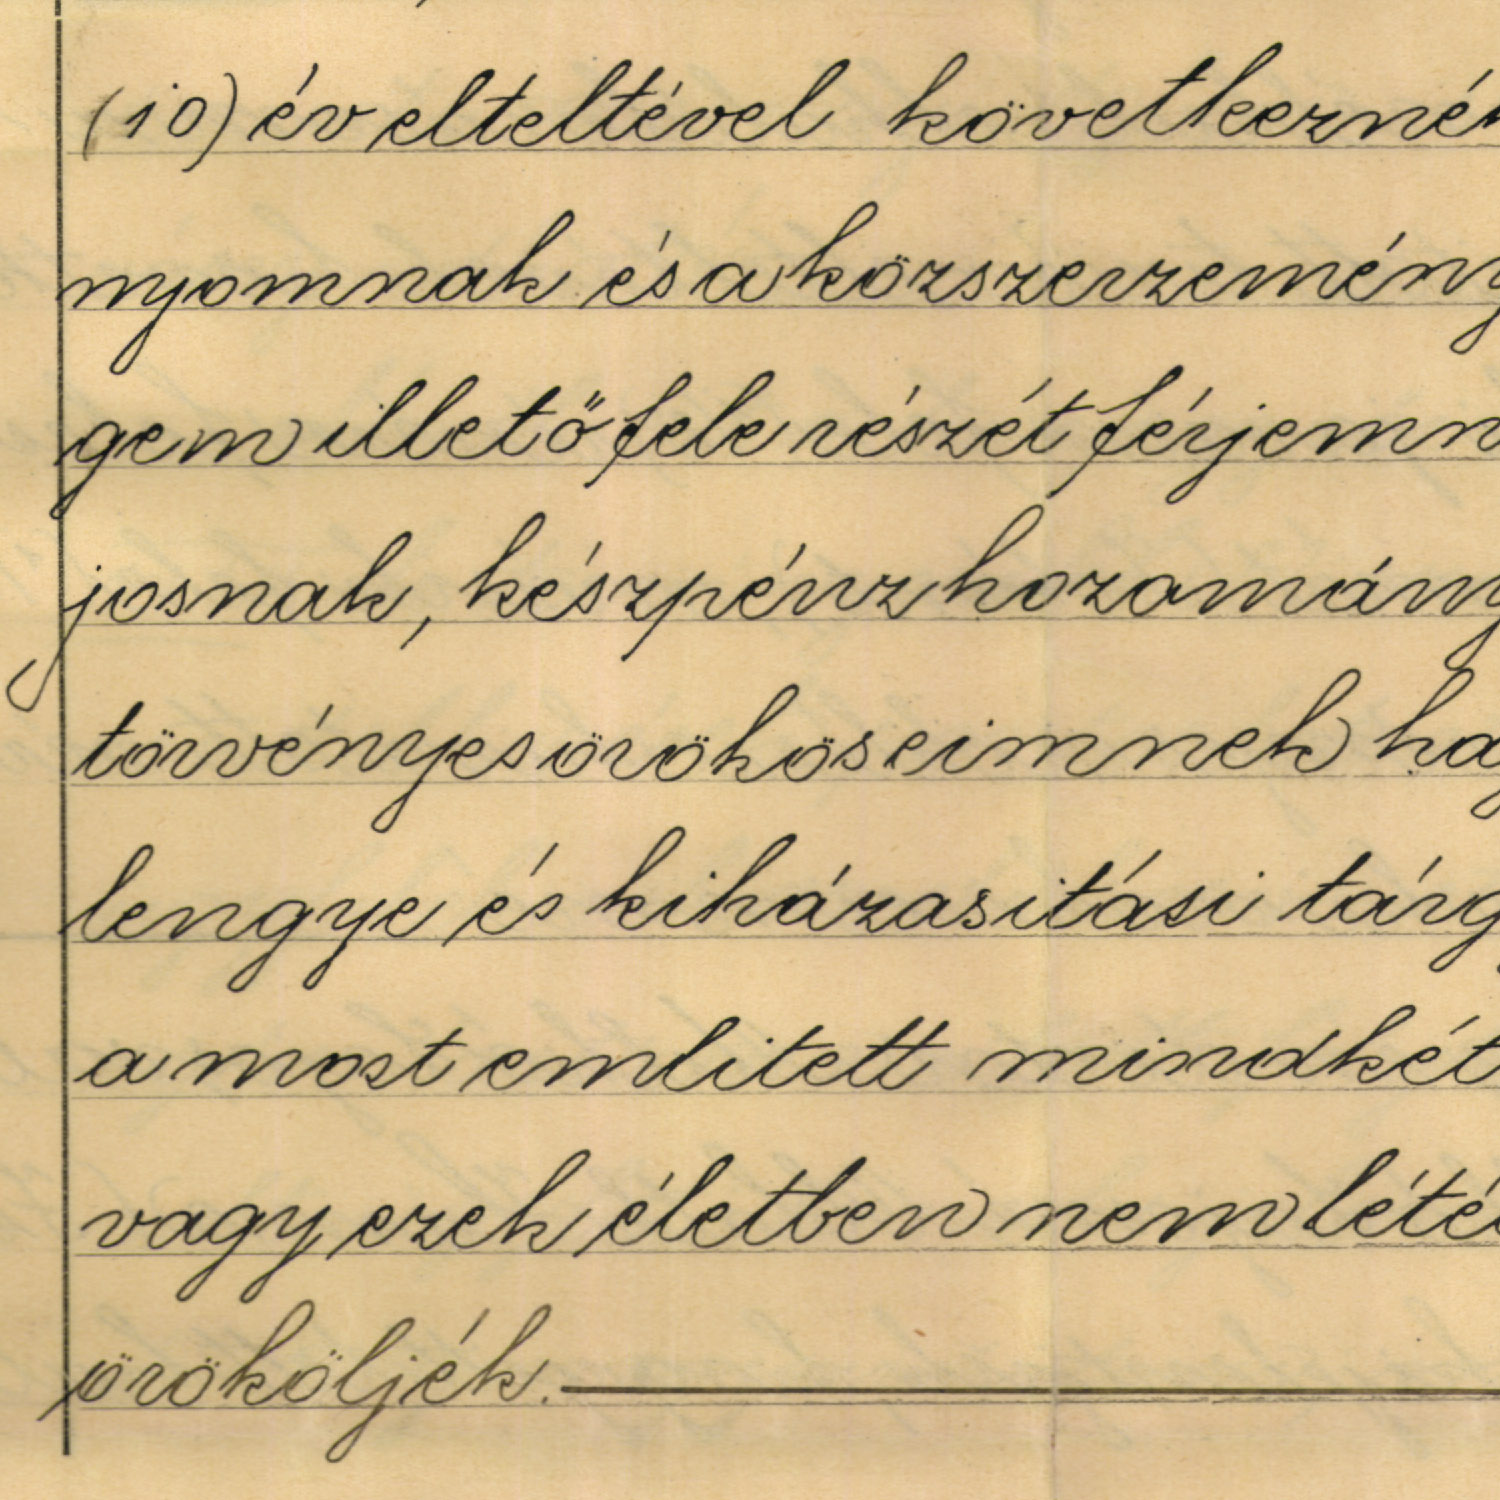 (10) év elteltével következné
nyomnak és a közszerzemény
gem illető fele részét férjemn
josnak, készpénz hozomány
törvényes örököseimnek ha
lengye és kiházasitási tárg
a most emlitett mindkét
vagy ezek életben nem lété
örököljék.